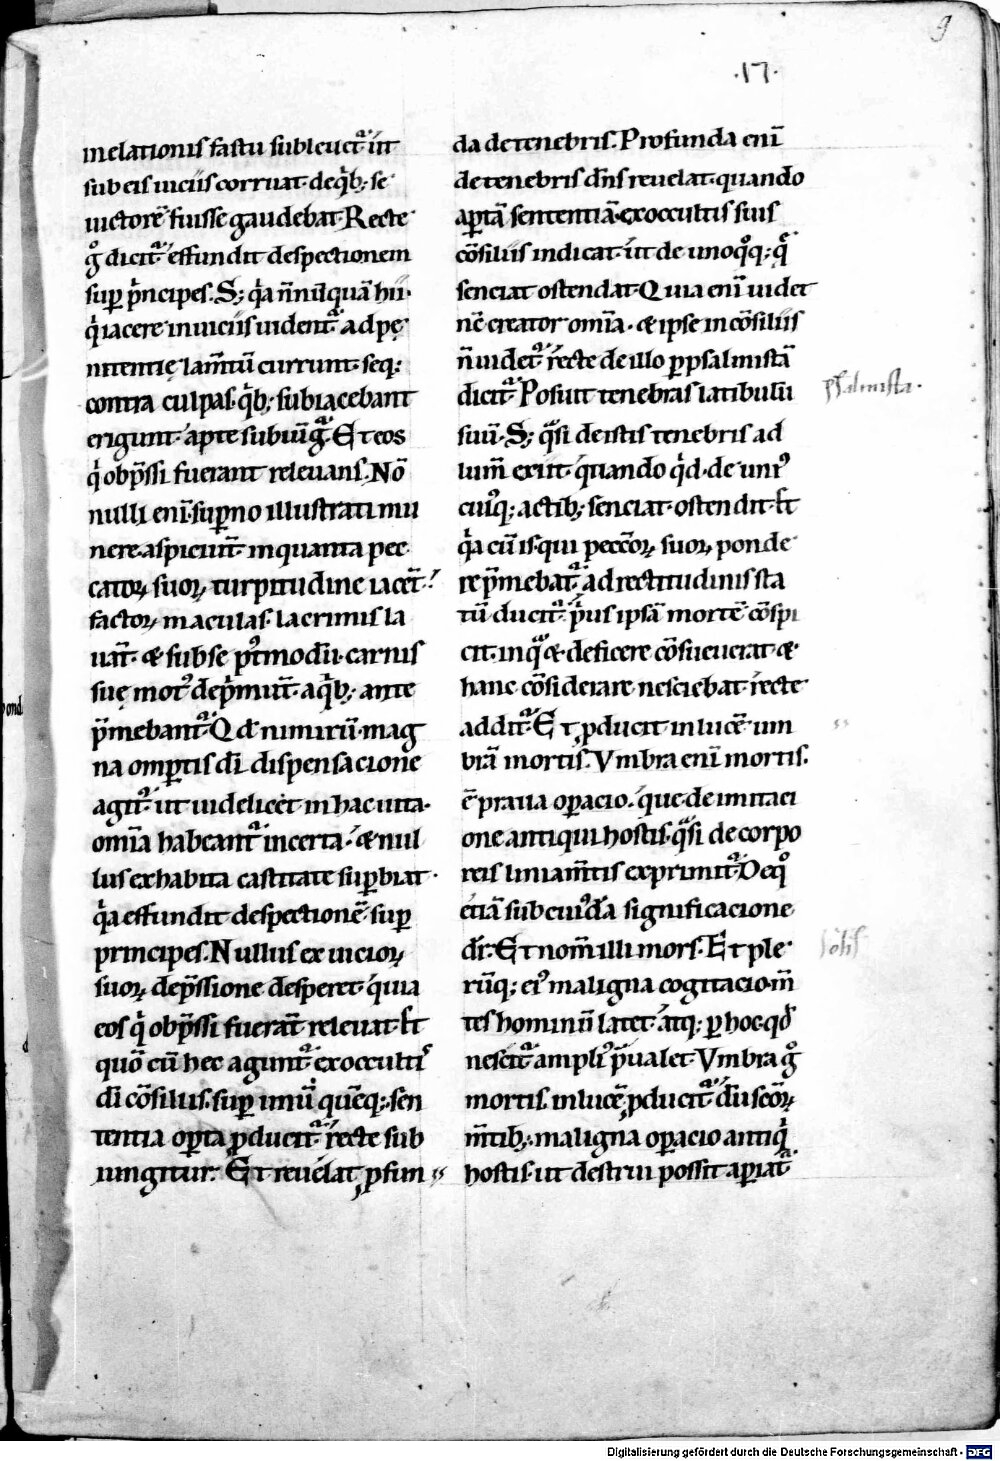 9
.17.
in elationis fastu subleuet᷑ ut
sub eis uiciis corruat. de qͥb; se
uictorē fuisse gaudebat. Recte
gͦ dicit᷑. effundit despectionem
suꝑ pͥncipes. S; qͥa nͫ nūquā hii.
qͥ iacere in uiciis uident᷑. ad pę
nitentię lam̄tū currunt. seq;
contra culpas. qͥb; subiacebant
erigunt. apte subiūg᷑. Et eos
qͥ obp̄ssi fuerant releuans. Nō
nulli eni. suꝑno illustrati mu
nere. aspiciūt in quanta pec
catoꝝ suoꝝ turpitudine iacēt.
factoꝝ maculas. lacrimis la
uāt. & sub se pꝰtmodū. carnis
suę motꝰ dep̄mūt. a qͥb; ante
p̄mebant᷑. Qd nimirū. mag
na omp̄tis dī dispensacione
agit᷑. ut uidelicet in hac uita.
om̄a habeant᷑ incerta. & nul
lus ex habita castitate suꝑbiat.
qͥa effundit despectionē suꝑ
principes. Nullus ex uicioꝝ
suoꝝ dep̄ssione desperet. quia
eos qͥ obp̄ssi fuerāt releuat. S̄t
quō cū hec agunt᷑. ex occultis
dī cōsiliis. suꝑ unū quēq; sen
tentia oꝑta ꝓducit᷑. recte sub
iungitur. Et reuelat ꝓfun
da de tenebris. Profunda enī
de tenebris dn̄s reuelat. quando
aꝑtā sententiā. ex occultis suis
cōsiliis indicat. ut de unoqͦq; qͩ
senciat ostendat. Quia enī uidet
nē creator om̄ia. & ipse in cōsiliis
n̄ uidet᷑. recte de illo ꝑ psalmistā
dicit᷑. Posuit tenebras latibulū
psalmista.
suū. S; qͣsi de istis tenebris ad
lum̄ exiit. quando qͥd de uniꝰ
cuiꝰq; actib; senciat. ostendit. S̄t
qͥa cū is qui peccōꝝ suoꝝ ponde
re p̄mebat᷑. ad rectitudinis sta
tū ducit᷑. pͥus ipsā mortē cōspi
cit. in qͣ & deficere cōsueuerat &
hanc cōsiderare nesciebat. recte
addit᷑. Et ꝓducit in lucē um
brā mortis. Vmbra enī mortis.
ē praua oꝑacio. que de imitaci
one antiqui hostis. qͣsi de corpo
reis liniam̄tis exprimit᷑. De qͦ
etiā sub cuiꝰdā significacione
dr̄. Et nom̄ illi mors. Et ple
rūq; eiꝰ maligna cogitacio. m̄
tes hominū latet. atq; ꝑ hoc. qd
nescit᷑. ampliꝰ p̄ualet. Vmbra gͦ
mortis. in lucē ꝓducit᷑. dū scōꝝ
m̄tib; maligna oꝑacio antiqͥ
hostis. ut destrui possit aꝑiat᷑
Digitalisierung gefördert durch die Deutsche Forschungsgemeinschaft - DFG